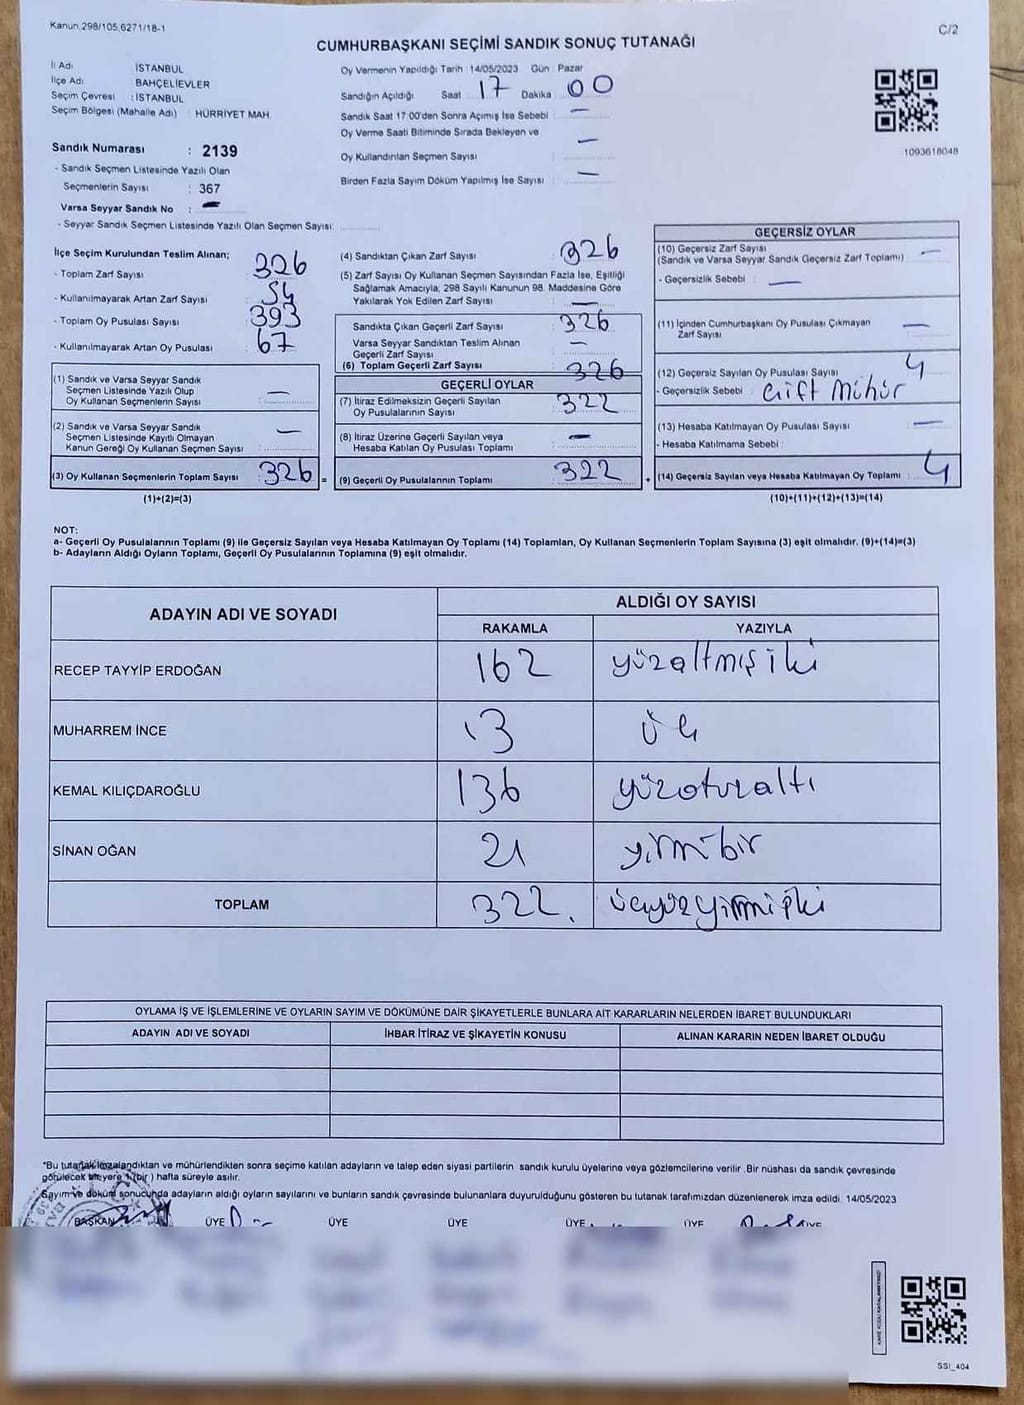 Kanun,298/105,6271/18-1
C/2
CUMHURBAŞKANI SEÇİMİ SANDIK SONUÇ TUTANAĞI
İl Adı İSTANBUL
İlçe Adı BAHÇELİEVLER
Seçim Çevresi : İSTANBUL
Seçim Bölgesi (Mahalle Adı) : HÜRRİYET MAH.
Sandık Numarası : 2139
- Sandık Seçmen Listesinde Yazılı Olan
Seçmenlerin Sayısı : 367
Varsa Seyyar Sandık No : —
- Seyyar Sandık Seçmen Listesinde Yazılı Olan Seçmen Sayısı:
Oy Vermenin Yapıldığı Tarih 14/05/2023 Gün : Pazar
Sandığın Açıldığı Saat 17 Dakika 00
Sandık Saat 17.00'den Sonra Açımış İse Sebebi —
Oy Verme Saati Bitiminde Sırada Bekleyen ve
Oy Kullandırılan Seçmen Sayısı —
Birden Fazla Sayım Döküm Yapılmış İse Sayısı —
1093618048
İlçe Seçim Kurulundan Teslim Alınan;
- Toplam Zarf Sayısı 326
- Kullanılmayarak Artan Zarf Sayısı 54
- Toplam Oy Pusulası Sayısı 393
- Kullanılmayarak Artan Oy Pusulası 67
(1) Sandık ve Varsa Seyyar Sandık
Seçmen Listesinde Yazılı Olup
Oy Kullanan Seçmenlerin Sayısı —
(2) Sandık ve Varsa Seyyar Sandık
Seçmen Listesinde Kayıtlı Olmayan
Kanun Gereği Oy Kullanan Seçmen Sayısı —
(3) Oy Kullanan Seçmenlerin Toplam Sayısı : 326
(1)+(2)=(3)
(4) Sandıktan Çıkan Zarf Sayısı : 326
(5) Zarf Sayısı Oy Kullanan Seçmen Sayısından Fazla İse, Eşitliği
Sağlamak Amacıyla, 298 Sayılı Kanunun 98. Maddesine Göre
Yakılarak Yok Edilen Zarf Sayısı —
Sandıkta Çıkan Geçerli Zarf Sayısı 326
Varsa Seyyar Sandıktan Teslim Alınan
Geçerli Zarf Sayısı —
(6) Toplam Geçerli Zarf Sayısı 326
GEÇERLİ OYLAR
(7) İtiraz Edilmeksizin Geçerli Sayılan
Oy Pusulalarının Sayısı 322
(8) İtiraz Üzerine Geçerli Sayılan veya
Hesaba Katılan Oy Pusulası Toplamı —
= (9) Geçerli Oy Pusulalarının Toplamı 322
GEÇERSİZ OYLAR
(10) Geçersiz Zarf Sayısı
(Sandık ve Varsa Seyyar Sandık Geçersiz Zarf Toplamı) —
- Geçersizlik Sebebi : —
(11) İçinden Cumhurbaşkanı Oy Pusulası Çıkmayan
Zarf Sayısı —
(12) Geçersiz Sayılan Oy Pusulası Sayısı 4
- Geçersizlik Sebebi : Çift Mühür
(13) Hesaba Katılmayan Oy Pusulası Sayısı —
- Hesaba Katılmama Sebebi :
+ (14) Geçersiz Sayılan veya Hesaba Katılmayan Oy Toplamı : 4
(10)+(11)+(12)+(13)=(14)
NOT:
a- Geçerli Oy Pusulalarının Toplamı (9) ile Geçersiz Sayılan veya Hesaba Katılmayan Oy Toplamı (14) Toplamları, Oy Kullanan Seçmenlerin Toplam Sayısına (3) eşit olmalıdır. (9)+(14)=(3)
b- Adayların Aldığı Oyların Toplamı, Geçerli Oy Pusulalarının Toplamına (9) eşit olmalıdır.
ADAYIN ADI VE SOYADI ALDIĞI OY SAYISI
RAKAMLA YAZIYLA
RECEP TAYYİP ERDOĞAN 162 yüzaltmışiki
MUHARREM İNCE 13 üç
KEMAL KILIÇDAROĞLU 136 yüzotuzaltı
SİNAN OĞAN 21 yirmibir
TOPLAM 322. üçyüzyirmiiki
OYLAMA İŞ VE İŞLEMLERİNE VE OYLARIN SAYIM VE DÖKÜMÜNE DAİR ŞİKAYETLERLE BUNLARA AİT KARARLARIN NELERDEN İBARET BULUNDUKLARI
ADAYIN ADI VE SOYADI İHBAR İTİRAZ VE ŞİKAYETİN KONUSU ALINAN KARARIN NEDEN İBARET OLDUĞU
*Bu tutanak imzalandıktan ve mühürlendikten sonra seçime katılan adayların ve talep eden siyasi partilerin sandık kurulu üyelerine veya gözlemcilerine verilir. Bir nüshası da sandık çevresinde
görülecek bir yere 1(bir) hafta süreyle asılır.
Sayım ve döküm sonucunda adayların aldığı oyların sayılarını ve bunların sandık çevresinde bulunanlara duyurulduğunu gösteren bu tutanak tarafımızdan düzenlenerek imza edildi. 14/05/2023
BAŞKAN ÜYE ÜYE ÜYE ÜYE ÜYE ÜYE
KARE KODU KARALAMAYINIZ!
SSI_404